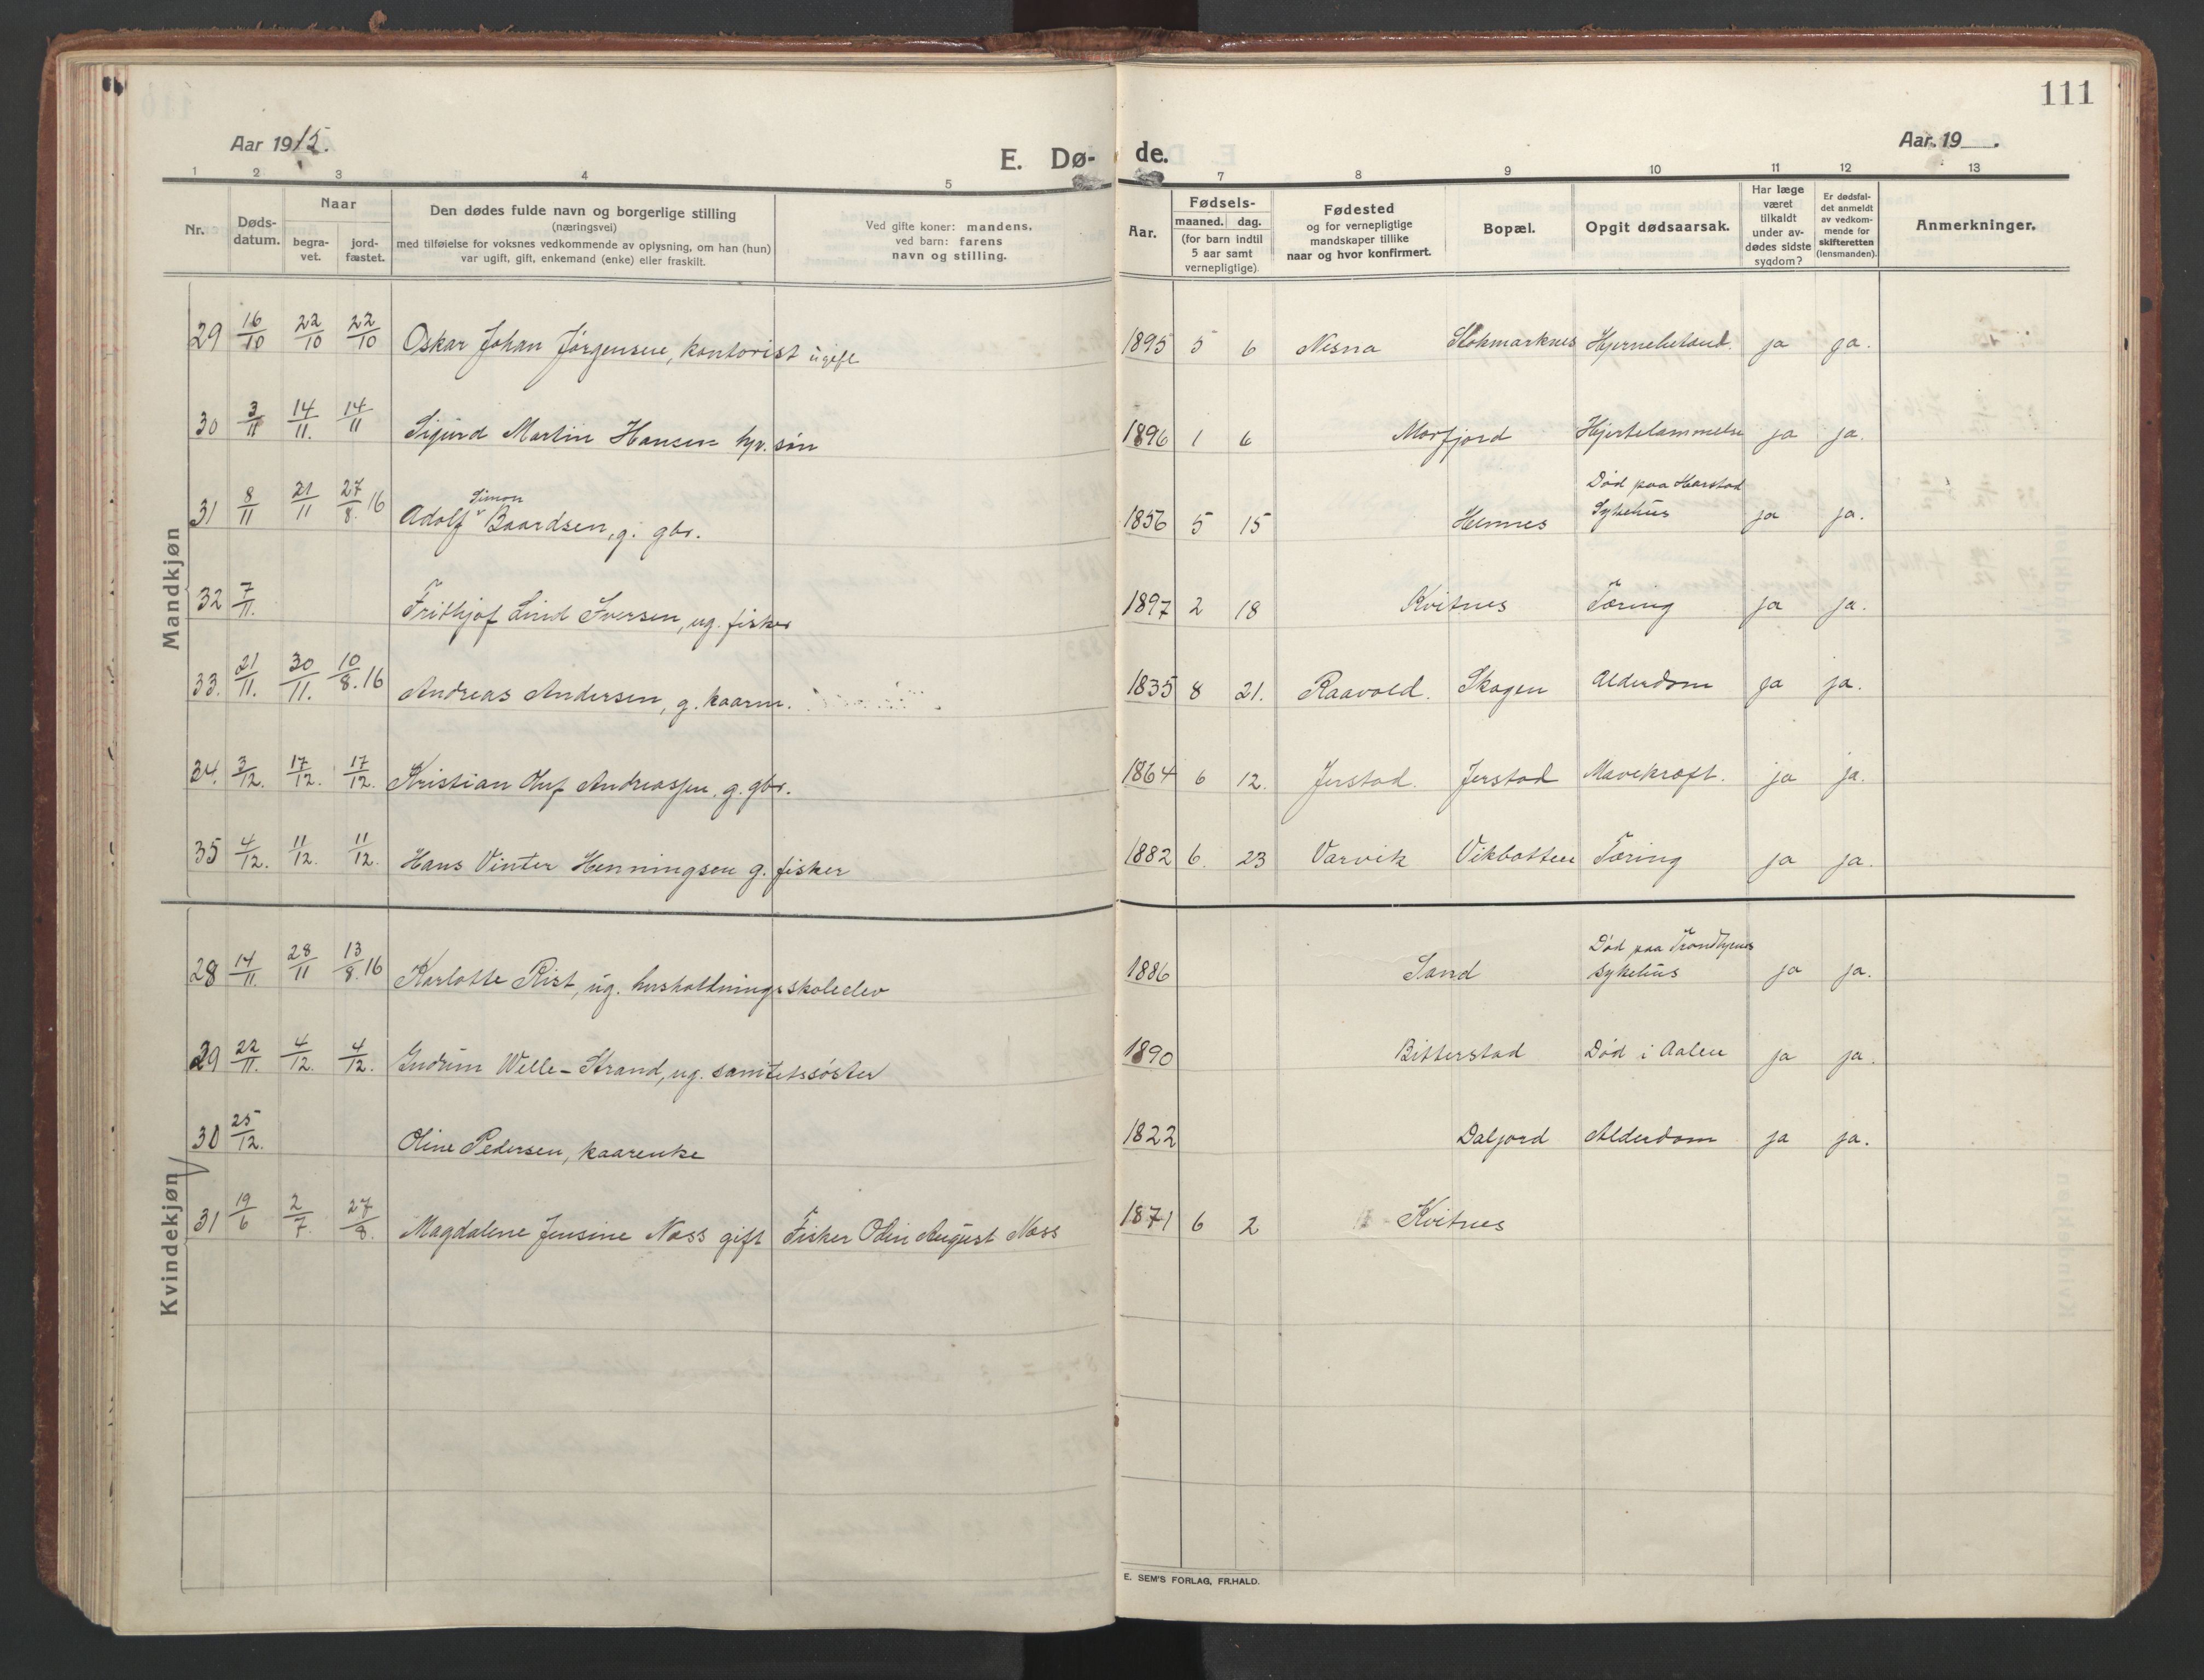 111
Aar 1915.
Aar 19 .
E. Dø- de.
1 2 3 4 5 7 8 9 10 11 12 13
Nr.
Døds-
datum.
Naar
begra-
vet.
jord-
fæstet.
Den dødes fulde navn og borgerlige stilling
(næringsvei)
med tilføielse for voksnes vedkommende av oplysning, om han (hun)
var ugift, gift, enkemand (enke) eller fraskilt.
Ved gifte koner: mandens,
ved barn: farens
navn og stilling.
Aar.
Fødsels-
maaned. dag.
(for barn indtil
5 aar samt
vernepligtige)
Fødested
og for vernepligtige
mandskaper tillike
naar og hvor konfirmert.
Bopæl.
Opgit dødsaarsak.
Har læge
været
tilkaldt
under av-
dødes sidste
sygdom?
Er dødsfal-
det anmeldt
av vedkom-
mende for
skifteretten
(lensmanden).
Anmerkninger.
Mandkjøn
29 16/10 22/10 22/10 Oskar Johan Jørgensen, kontorist ugift 1895 5 6 Nesna Stokmarknes ja ja.
30 3/11 14/11. 14/11 Sigurd Martin Hansen gbr. søn 1896 1 6 Morfjord Hjertelammelse ja ja.
31 8/11 21/11 27/8. 16 Adolf Simon Baardsen, g. gbr. 1856 5 15 Hennes Død paa Harstad
Sykehus ja ja.
32 7/11. Frithjof Lind Iversen, ug. fisker 1897 2 18 Kvitnes Tæring ja ja.
33. 21/11. 30/11. 10/8. 16 Andreas Andersen, g. kaarm. 1835 8 21. Raavold. Skagen Alderdom ja ja.
34. 3/12. 17/12. 17/12. Kristian Oluf Andreassen, g. gbr. 1864 6 12. Jerstad. Jerstad Mavekræft. ja ja.
35 4/12. 11/12. 11/12. Hans Vinter Henningsen g. fisker 1882 6. 23 Varvik Vikbotten Tæring ja ja.
Kvindekjøn
28 14/11. 28/11 13/8. 16 Karlotte Rist, ug. husholdningsskoleelev 1886 Sand Død paa Trondhjems
sykehus ja ja.
29 22/11. 4/12. 4/12. Gudrun Welle-Strand, ug. sanitetssøster 1890 Bitterstad Død i Aalen ja ja.
30 25/12. Oline Pedersen, kaarenke 1822 Daljord Alderdom ja ja.
31 19/6 2/7. 27/8. Magdalene Jensine Næss gift Fisker Odin August Næss 1871 6 2 Kvitnes
E. SEM'S FORLAG, FR.HALD.